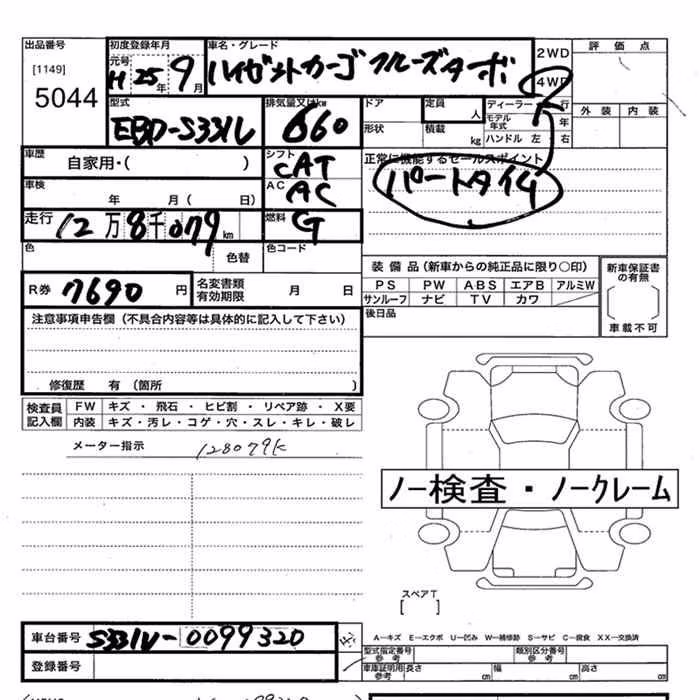 出品番号 初度登録年月 車名・グレード 2WD 評価点
[1149] 元号 H 25年 9月 ハイゼットカーゴ クルーズターボ 4WD
5044 外装 内装
型式 排気量又はkw ドア 定員 人 ディーラー 並 行
EBD-S331V 660 形状 積載 kg モデル年式 年
ハンドル 左・右
車歴 自家用・( ) シフト CAT 正常に機能するセールスポイント
車検 年 月( 日) AC AC パートタイム
走行 12万8千079km 燃料 G
色 色替 色コード
装備品(新車からの純正品に限り〇印) 新車保証書の有無
R券 7690円 名変書類有効期限 月 日 PS PW ABS エアB アルミW
サンルーフ ナビ TV カワ
注意事項申告欄(不具合内容等は具体的に記入して下さい) 後日品 車載不可
修復歴 有(箇所 )
検査員記入欄 FW キズ・飛石・ヒビ割・リペア跡・X要
内装 キズ・汚レ・コゲ・穴・スレ・キレ・破レ
メーター指示 128079K
ノー検査・ノークレーム
スペアT
[ ]
車台番号 S331V-0099320 A-キズ E-エクボ U-凹み W-補修跡 S-サビ C-腐食 XX-交換済
登録番号 型式指定番号 参考 類別区分番号 参考
車庫証明用参考 長さ cm 幅 cm 高さ cm